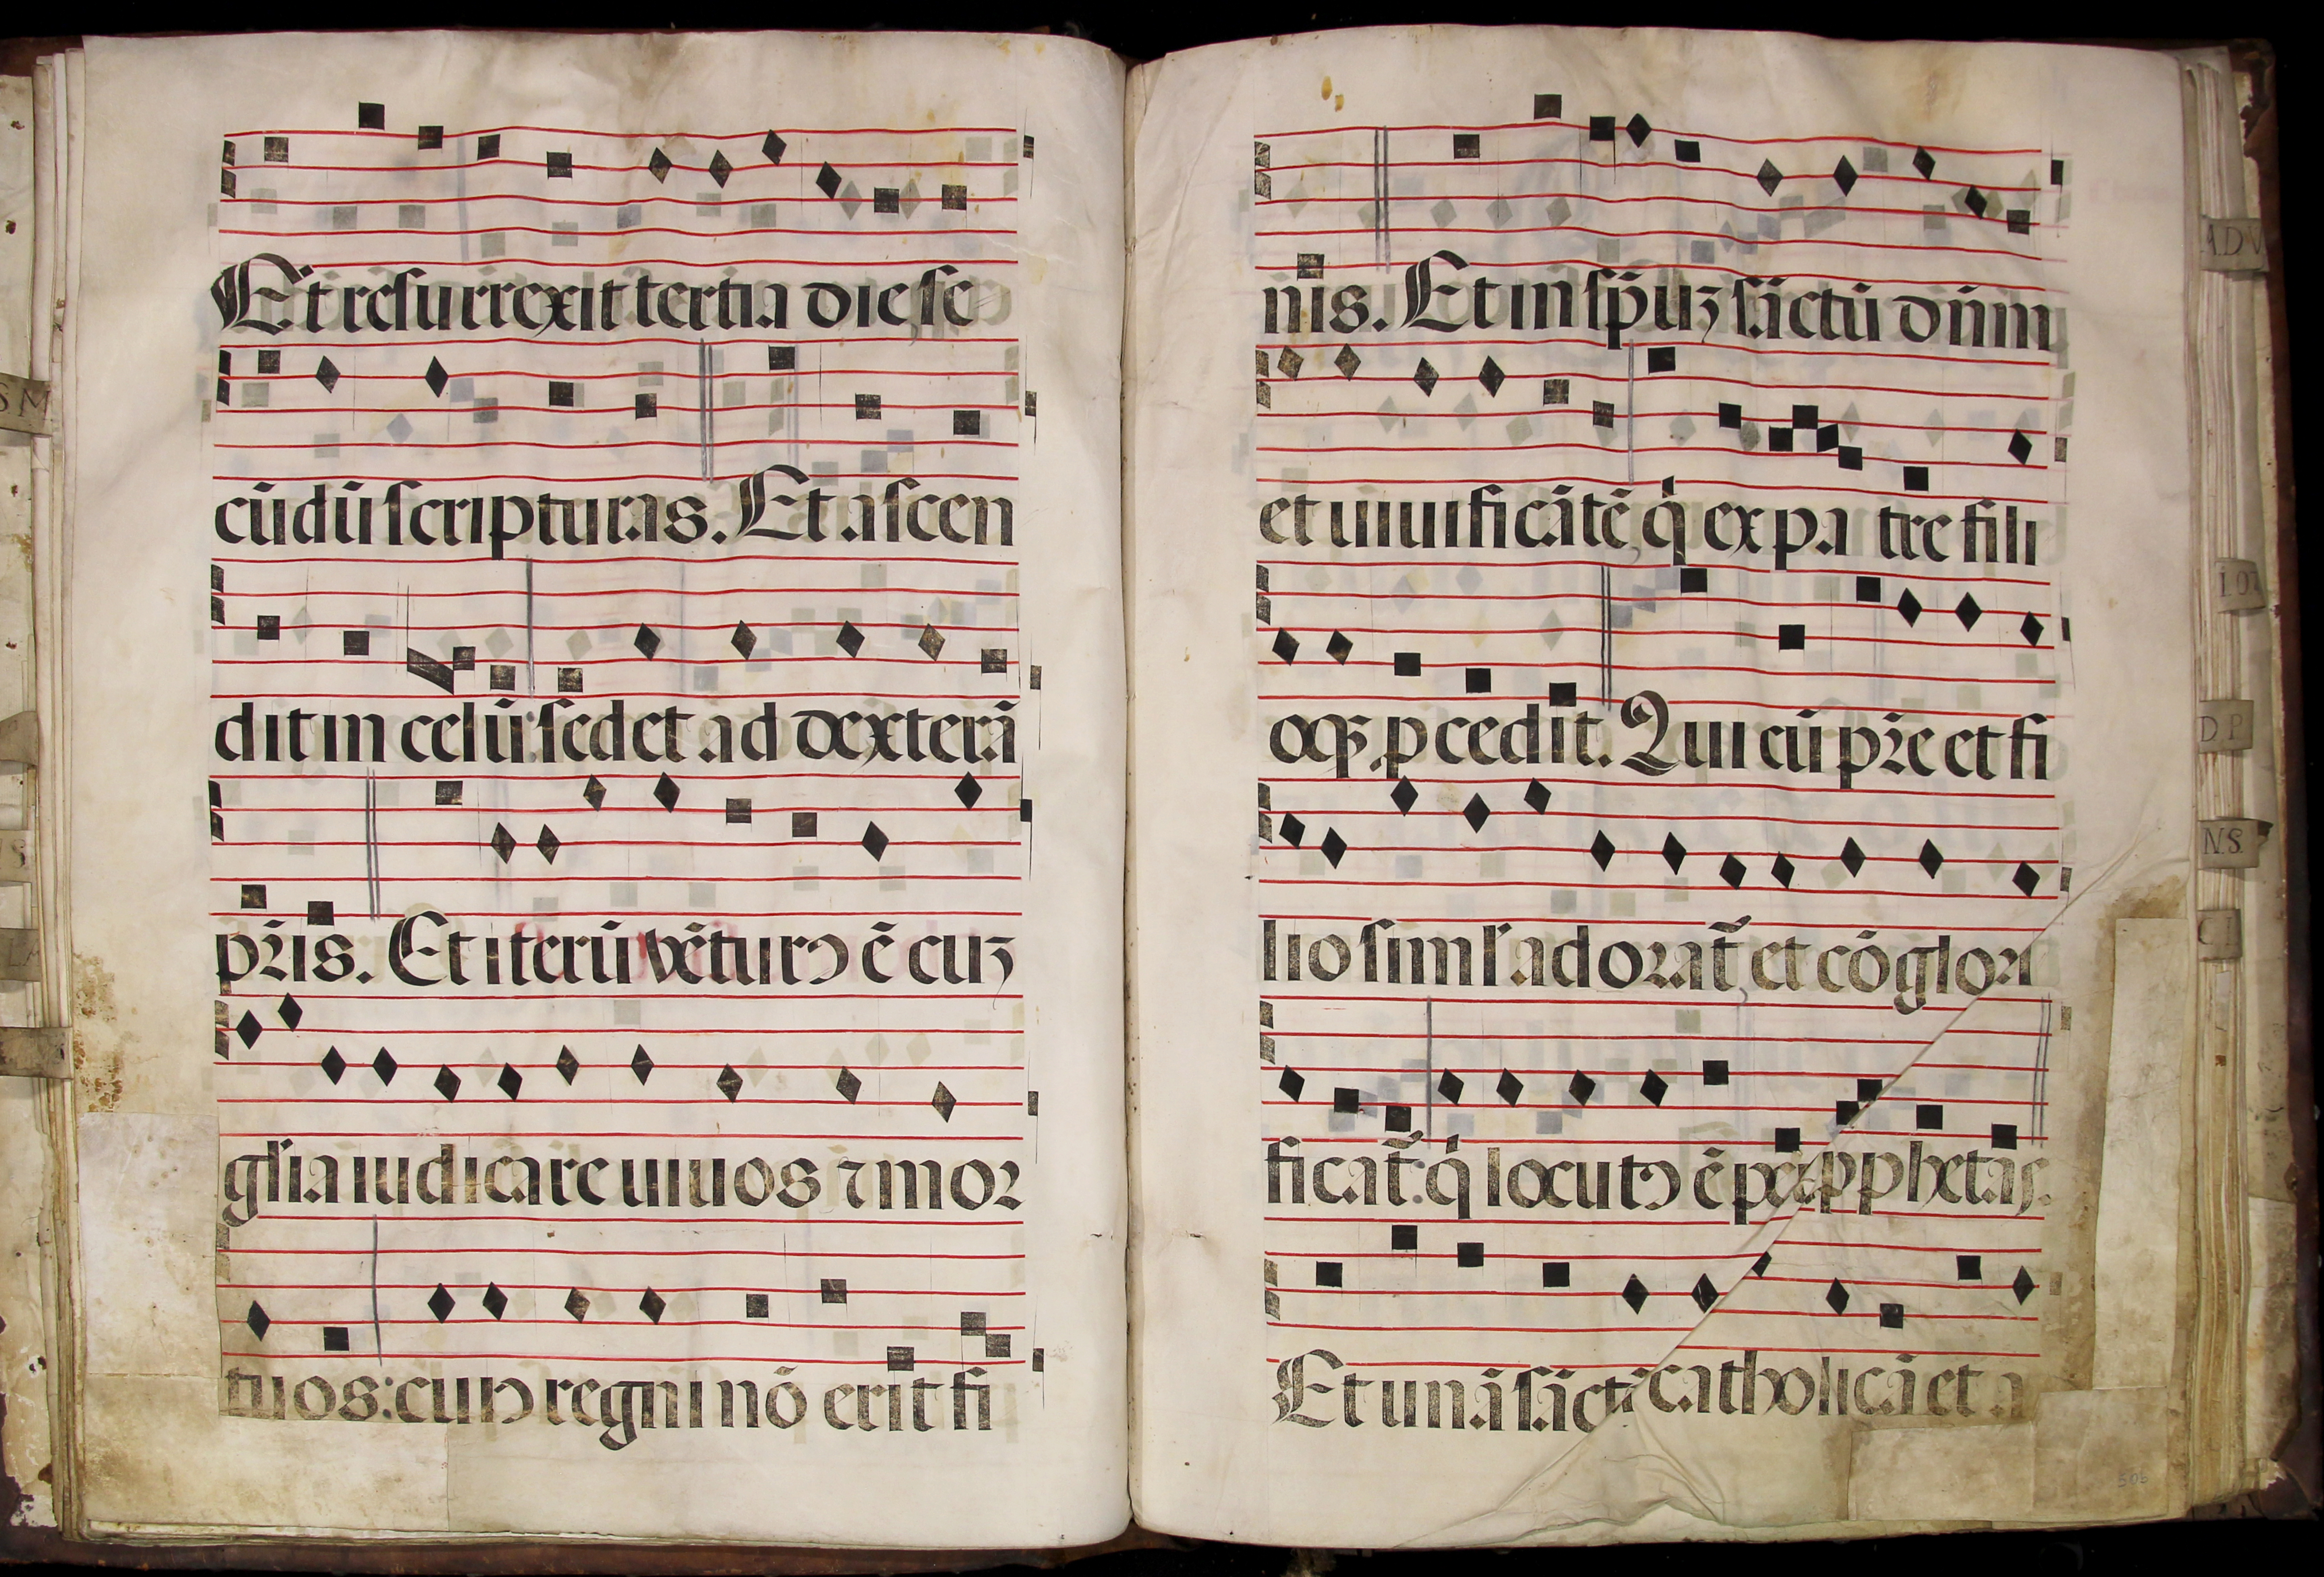 Et resurrexit tertia die se
cūdū scripturas. Et ascen
dit in celū: sedet ad dexterā
pr̄is. Et iterū vēturꝯ ē cuꝫ
gl̄ia iudicare uiuos ⁊ mor
tuos: cuiꝯ regni nō erit fi
nis. Et in sp̄uꝫ sāctū dn̄m
et uiuificātē q̇ ex patre fili
oqꝫ ꝓcedit. Qui cū pr̄e et fi
lio siml̄ adorat̃ et cōglori
ficat̃: q̇ locutꝯ ē per ꝓphetas.
Et unā sāctā catholicā et a
SM
ADV
D P
N.S.
505